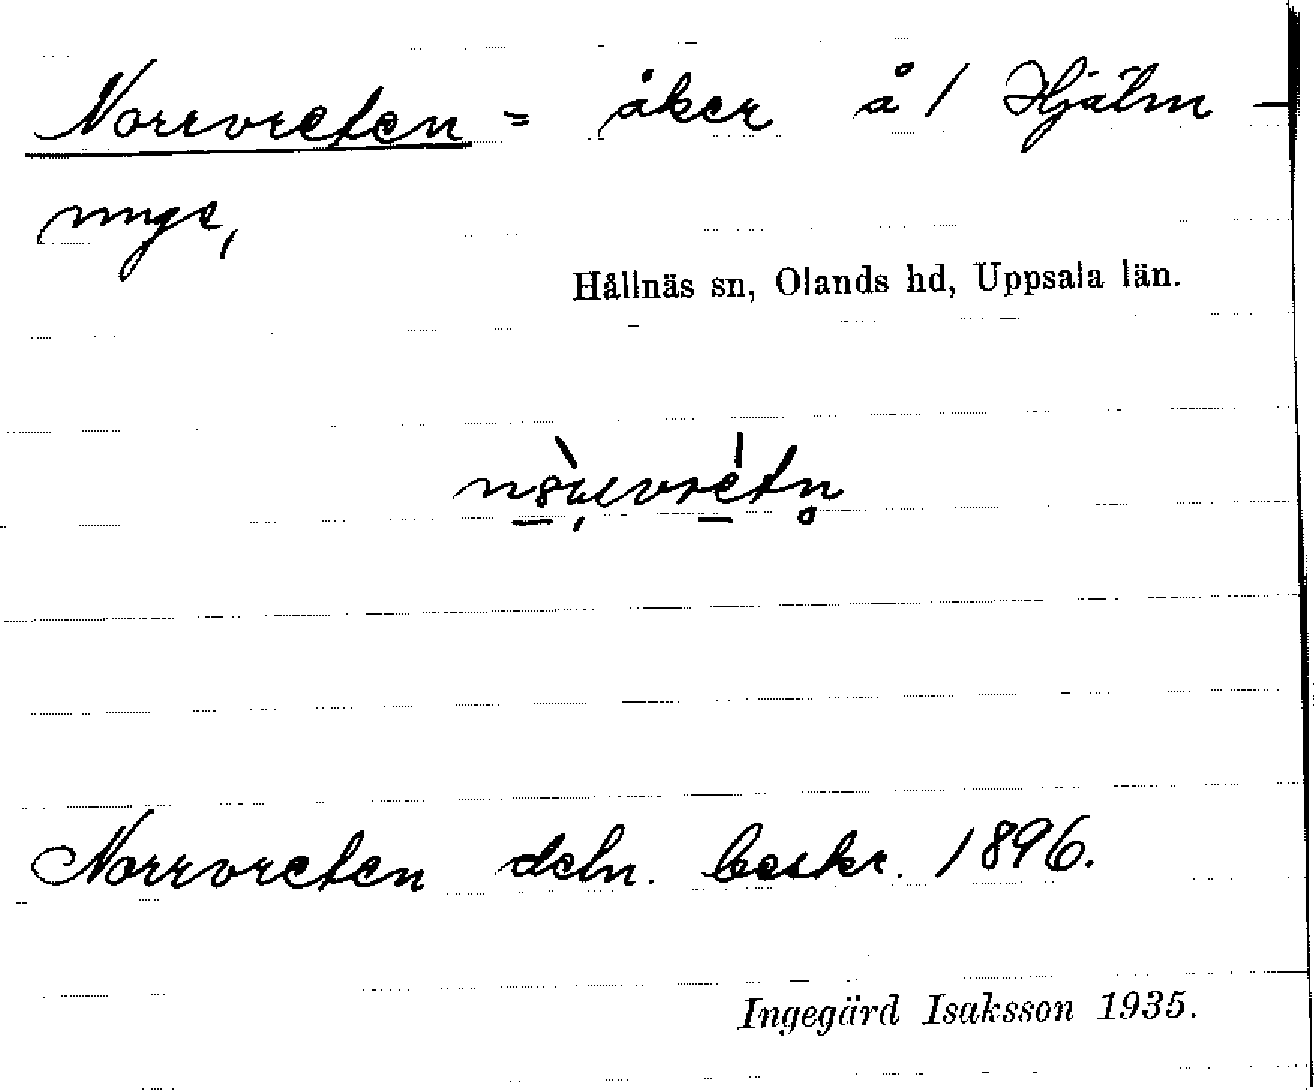 Norrvreten = åker å / Hjälm-
unge,
Hållnäs sn, Olands hd, Uppsala län.
Norrvreten deln. beskr. 1896.
Ingegärd Isaksson 1935.